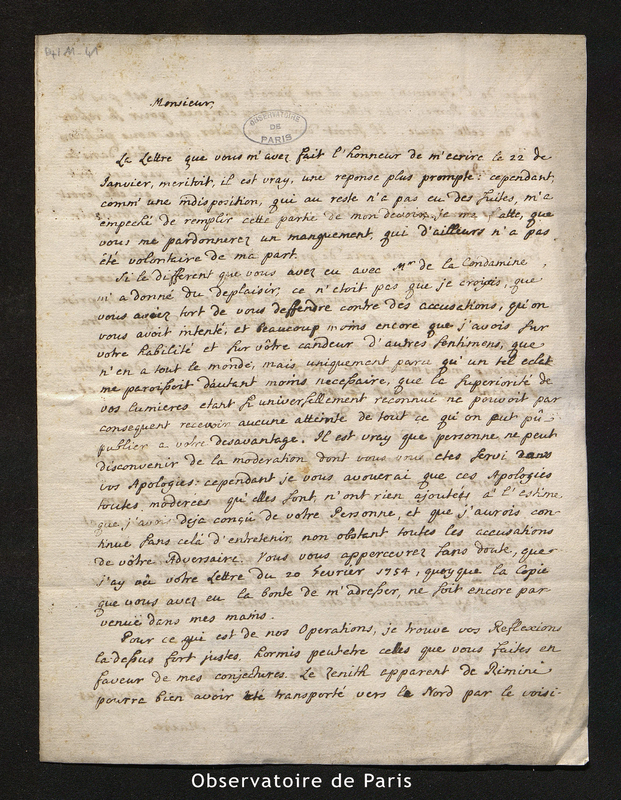 Monsieur,
OBSERVATOIRE
DE
PARIS
La Lettre que vous m'avez fait l'honneur de m'ecrire le 22 de
Janvier, meritoit, il est vray, une reponse plus prompte: cependant,
comm' une indisposition, qui au reste n'a pas eu des suites, m'a
empeché de remplir cette partie de mon devoir, je me flatte, que
vous me pardonnerez un manquement, qui d'ailleurs n'a pas
été volontaire de ma part.
Si le different que vous avez eu avec Mr de la Condamine
m'a donné du deplaisir, ce n'etoit pas que je croiois, que
vous aviez tort de vous deffendre contre des accusations, qu'on
vous avoit intenté, et beaucoup moins encore que j'avois sur
votre habilité et sur vôtre candeur d'autres sentimens, que
n'en a tout le monde, mais uniquement parce qu'un tel eclat
me paroissoit d'autant moins necessaire, que la superiorité de
vos lumieres etant si universellement reconnuë ne pouvoit par
consequent recevoir aucune atteinte de tout ce qu'on put pû
publier a vôtre desavantage. Il est vray que personne ne peut
disconvenir de la moderation dont vous vous etes servi dans
vos Apologies: cependant je vous avouerai que ces Apologies
toutes moderées qu'elles sont, n'ont rien ajouteés à l'estime
que j'avois deja conçû de votre Personne, et que j'aurois con-
tinué sans celà d'entretenir, non obstant toutes les accusations
de vôtre Adversaire. Vous vous appercevrez sans doute, que
j'ay vû votre Lettre du 20 Fevrier 1754, quoyque la Copie
que vous avez eu la bonté de m'adresser, ne soit encore par-
venuë dans mes mains.
Pour ce qui est de nos Operations, je trouve vos Reflexions
là-dessus fort justes, hormis peutetre celles que vous faites en
faveur de mes conjectures. Le Zenith apparent de Rimini
pourra bien avoir été transporté vers le Nord par le voisi-
Observatoire de Paris